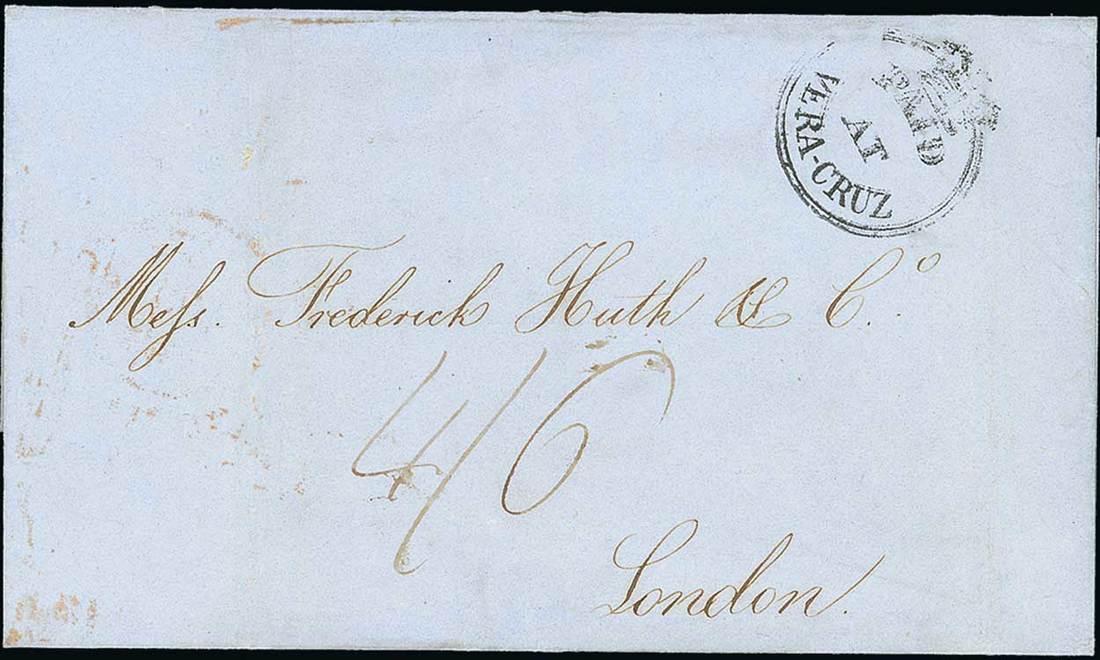 PAID
AT
VERA-CRUZ
Meſs. Frederick Huth & Cº.
4/6
London.